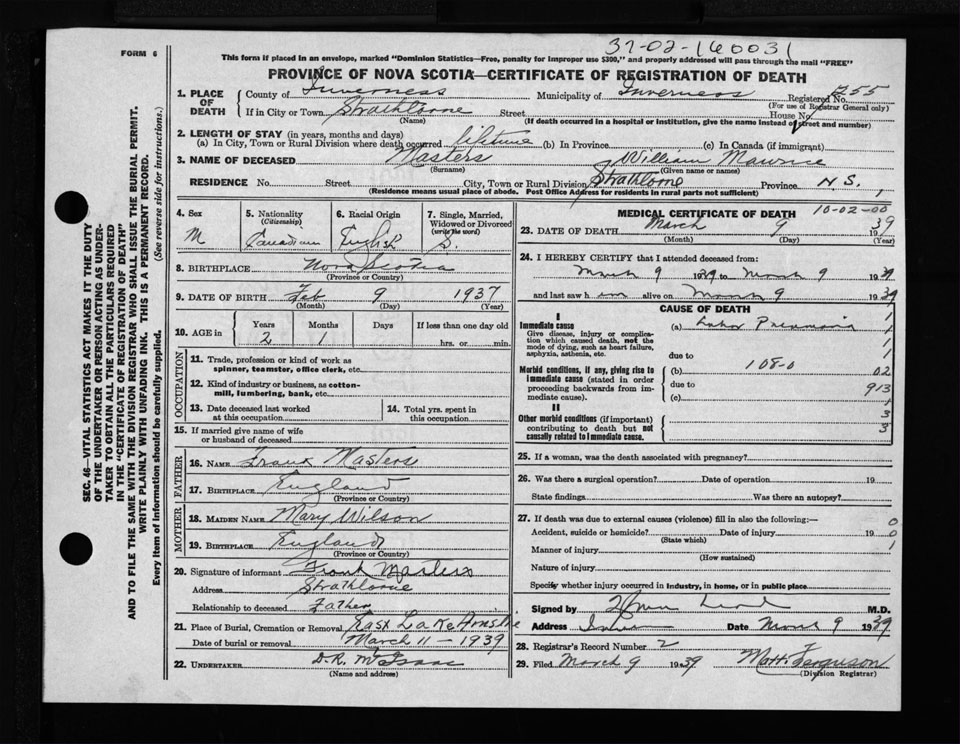 37-02-160031
FORM 6
This form if placed in an envelope, marked "Dominion Statistics—Free, penalty for improper use $300," and properly addressed will pass through the mail "FREE"
PROVINCE OF NOVA SCOTIA—CERTIFICATE OF REGISTRATION OF DEATH
SEC. 46—VITAL STATISTICS ACT MAKES IT THE DUTY
OF THE UNDERTAKER OR PERSON ACTING AS UNDER-
TAKER TO OBTAIN ALL THE PARTICULARS REQUIRED
IN THE "CERTIFICATE OF REGISTRATION OF DEATH"
AND TO FILE THE SAME WITH THE DIVISION REGISTRAR WHO SHALL ISSUE THE BURIAL PERMIT.
WRITE PLAINLY WITH UNFADING INK. THIS IS A PERMANENT RECORD.
Every item of information should be carefully supplied. (See reverse side for instructions.)
1. PLACE OF DEATH County of Inverness Municipality of Inverness Registered No. 255
(For use of Registrar General only)
If in City or Town Strathlorne Street House No.
(Name) (If death occurred in a hospital or institution, give the name instead of street and number)
2. LENGTH OF STAY (in years, months and days)
(a) In City, Town or Rural Division where death occurred lifetime (b) In Province (c) In Canada (if immigrant)
3. NAME OF DECEASED Masters William Maurice
(Surname) (Given name or names)
RESIDENCE No. Street City, Town or Rural Division Strathlorne Province N.S.
(Residence means usual place of abode. Post Office Address for residents in rural parts not sufficient) 1
4. Sex M
5. Nationality (Citizenship) Canadian
6. Racial Origin English
7. Single, Married, Widowed or Divorced (write the word) S.
8. BIRTHPLACE Nova Scotia
(Province or Country)
9. DATE OF BIRTH Feb 9 1937
(Month) (Day) (Year)
10. AGE in Years Months Days If less than one day old
2 1 hrs. or min.
OCCUPATION
11. Trade, profession or kind of work as
spinner, teamster, office clerk, etc.
12. Kind of industry or business, as cotton-
mill, lumbering, bank, etc.
13. Date deceased last worked
at this occupation
14. Total yrs. spent in
this occupation
15. If married give name of wife
or husband of deceased
FATHER
16. NAME Frank Masters
17. BIRTHPLACE England
(Province or Country)
MOTHER
18. MAIDEN NAME Mary Wilson
19. BIRTHPLACE England
(Province or Country)
20. Signature of informant Frank Masters
Address Strathlorne
Relationship to deceased Father
21. Place of Burial, Cremation or Removal East Lake Ainslie
Date of burial or removal March 11 — 1939
22. UNDERTAKER D.R. McIsaac
(Name and address)
MEDICAL CERTIFICATE OF DEATH 10-02-00
23. DATE OF DEATH March 9 1939
(Month) (Day) (Year)
24. I HEREBY CERTIFY that I attended deceased from:
March 9 1939 to March 9 1939
and last saw h im alive on March 9 1939
CAUSE OF DEATH
I
Immediate cause (a) Lobar Pneumonia
Give disease, injury or complica-
tion which caused death, not the
mode of dying, such as heart failure,
asphyxia, asthenia, etc.
due to
Morbid conditions, if any, giving rise to
immediate cause (stated in order
proceeding backwards from im-
mediate cause).
(b) 108-0 02
due to 913
(c)
II
Other morbid conditions (if important)
contributing to death but not
causally related to immediate cause.
3
3
25. If a woman, was the death associated with pregnancy?
26. Was there a surgical operation? Date of operation 19
State findings Was there an autopsy?
27. If death was due to external causes (violence) fill in also the following:—
Accident, suicide or homicide? Date of injury 19
(State which)
Manner of injury
(How sustained)
Nature of injury
0
0
1
Specify whether injury occurred in industry, in home, or in public place
Signed by M.D.
Address Date March 9 1939
28. Registrar's Record Number 2
29. Filed March 9 1939 Matt. Ferguson
(Division Registrar)